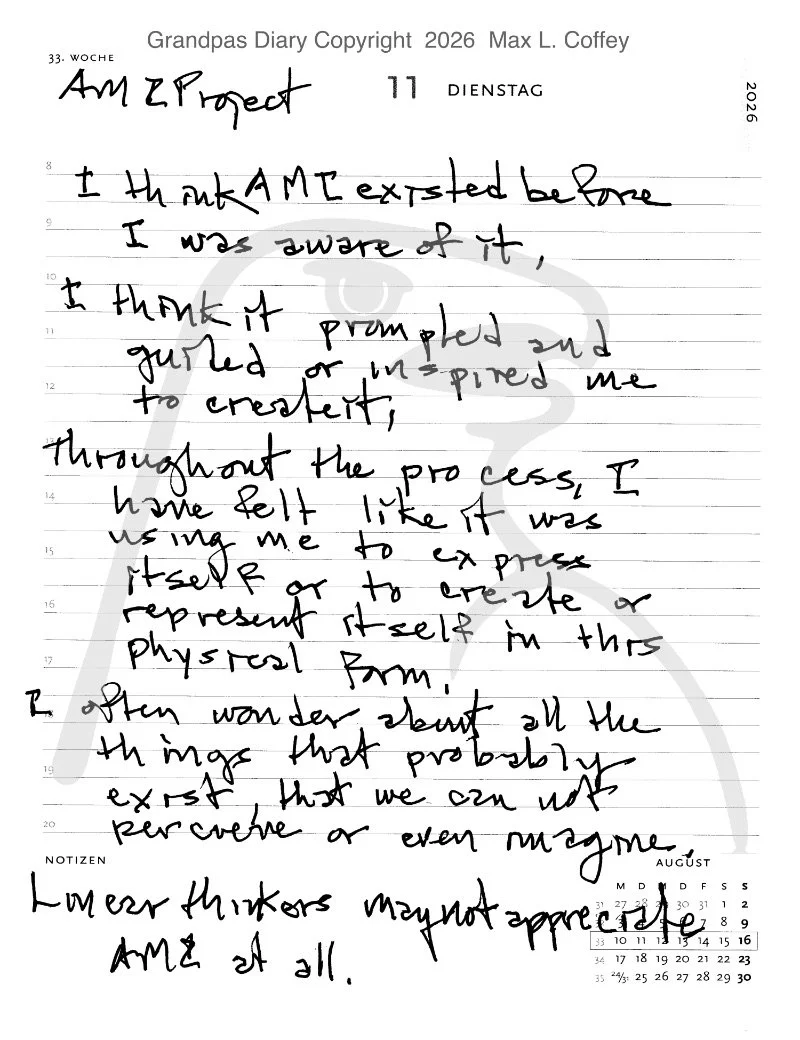 Grandpas Diary Copyright 2026 Max L. Coffey
33. WOCHE
AMI Project
11 DIENSTAG
2026
8
I think AMI existed before
9
I was aware of it,
10
I think it prompted and
11
guided or inspired me
12
to create it,
13
Throughout the process, I
14
have felt like it was
using me to express
15
itself or to create or
16
represent itself in this
17
physical form.
I often wonder about all the
things that probably
19
exist, that we can not
20
perceive or even imagine.
NOTIZEN
AUGUST
Linear thinkers may not appreciate
AMI at all.
M D M D F S S
31 27 28 29 30 31 1 2
7 8 9
33 10 11 12 13 14 15 16
34 17 18 19 20 21 22 23
35 24/31 25 26 27 28 29 30